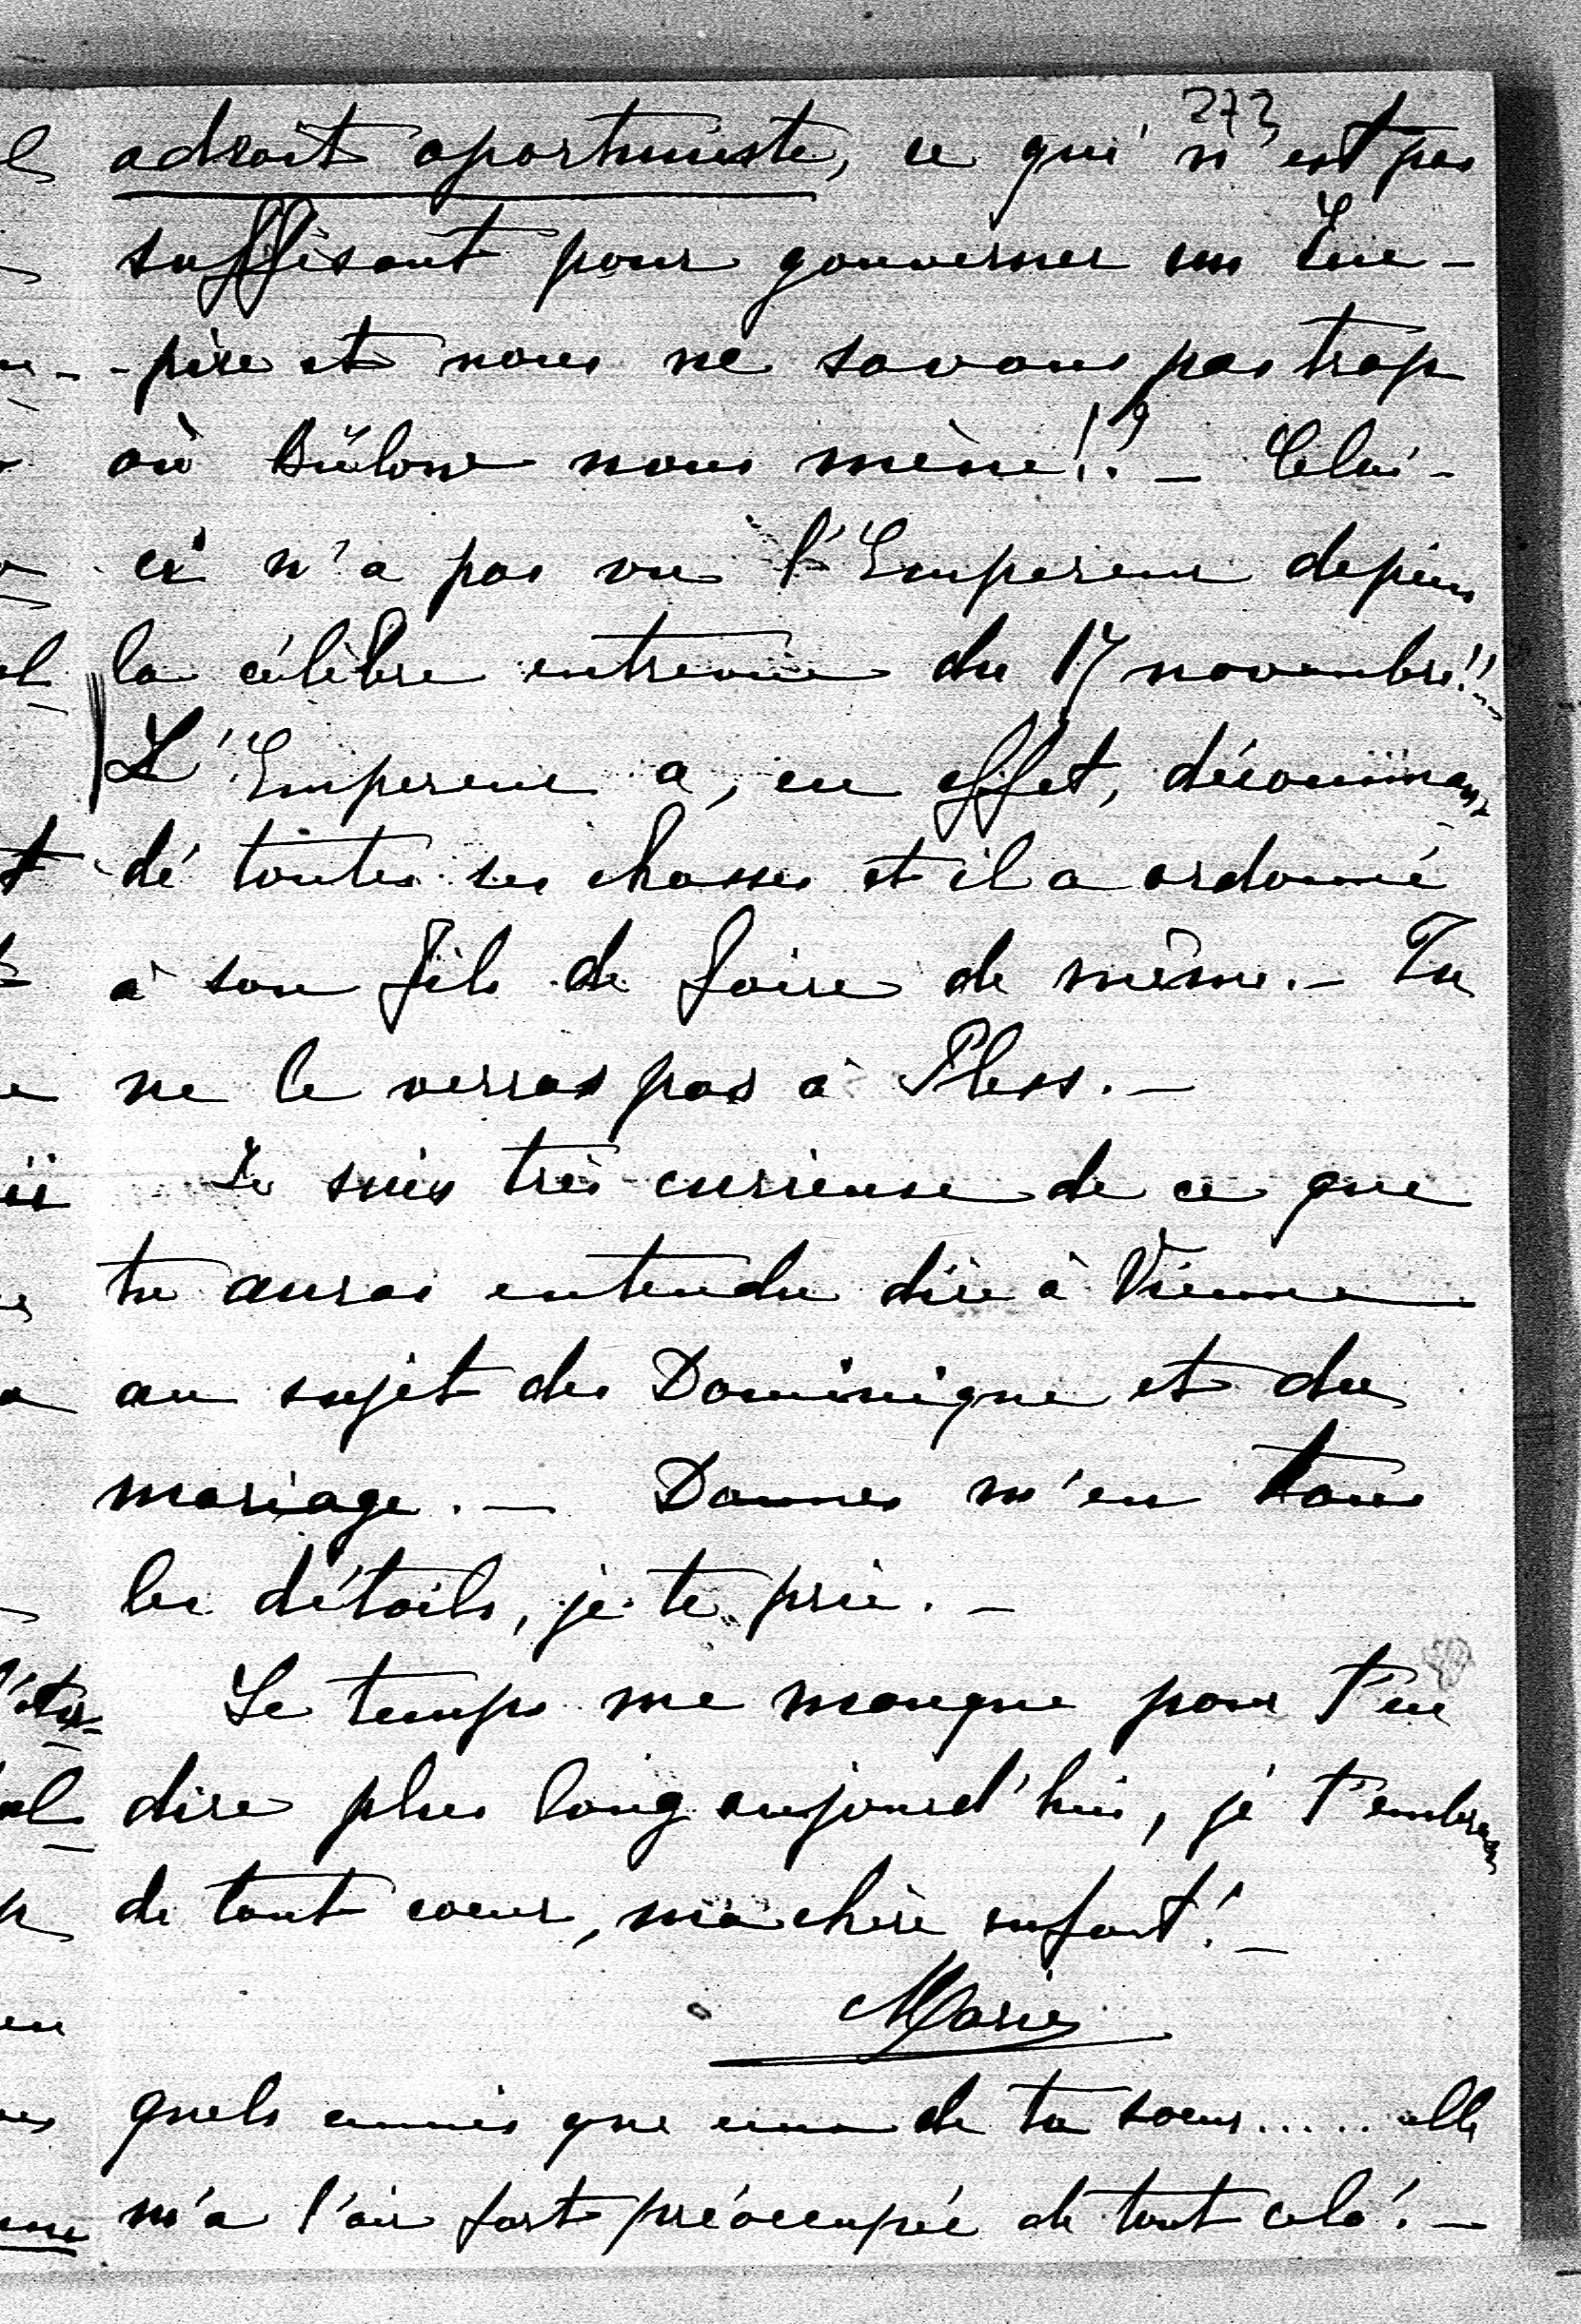 273
adroit oportuniste, ce qui n'est pas
suffisant pour gouverner un Em-
-pire et nous ne savons pas trop
où Bülow nous mène!? _ Celui-
ci n'a pas vu l'Empereur depuis
la célèbre entrevue du 17 novembre!!
L'Empereur a, en effet, décomman
dé toutes ses chasses et il a ordonné
à son fils de faire de même. _ Tu
ne le verras pas à Pless. _
Je suis très curieuse de ce que
tu auras entendu dire à Vienne
au sujet des Dominique et du
mariage. _ Donnes m'en tous
les détails, je te prie. _
Le temps me manque pour t'en
dire plus long aujourd'hui, je t'embrasse
de tout coeur, ma chère enfant! _
Marie
quels ennuis que ceux de ta soeur..... elle
m'a l'air fort préoccupée de tout cela! _